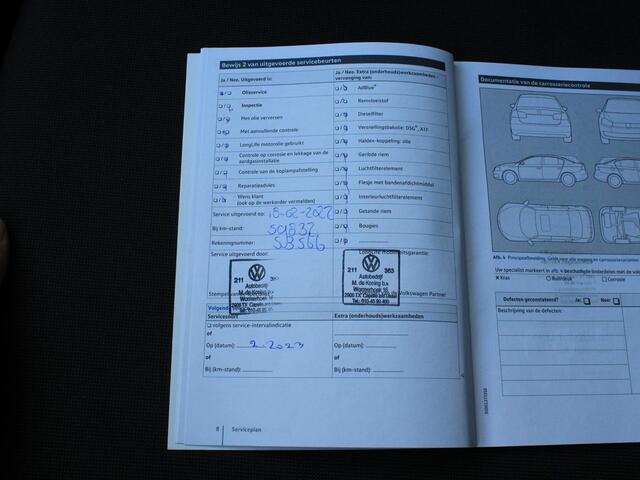 Bewijs 2 van uitgevoerde servicebeurten
Ja / Nee. Uitgevoerd is:
Olieservice
Inspectie
Met olie verversen
Met aanvullende controle
LongLife motorolie gebruikt
Controle op corrosie en lekkage van de
aardgasinstallatie
Controle van de koplampafstelling
Reparatieadvies
Wens klant
(ook op de werkorder vermelden)
Service uitgevoerd op: 18-02-2022
Bij km-stand: 59832
Rekeningnummer: 58566
Service uitgevoerd door:
211
Autobedrijf
M. de Koning b.v.
Wormerhoek 16
2905 TX Capelle
Ja / Nee. Extra (onderhouds)werkzaamheden –
vervanging van:
AdBlue®
Remvloeistof
Dieselfilter
Versnellingsbakolie: DSG®, ATF
Halden-koppeling: olie
Geribde riem
Luchtfilterelement
Flesje met bandenafdichtmiddel
Interieurluchtfilterelement
Getande riem
Bougies
mobiliteitsgarantie:
211 363
Autobedrijf
M. de Koning b.v.
Wormerhoek 16
2905 TX Capelle
van de Volkswagen Partner
Servicesoort
volgens service-intervalindicatie
of
Op (datum): 2-2023
of
Bij (km-stand):
Extra (onderhouds)werkzaamheden
Op (datum):
of
Bij (km-stand):
8 Serviceplan
Documentatie van de carrosseriecontrole
Afb. 4
Uw specialist markeert in afb. 4 beschadigde onderdelen met de
Kras
Buil/deuk
Corrosie
Defecten geconstateerd? Ja: Nee:
Beschrijving van de defecten: